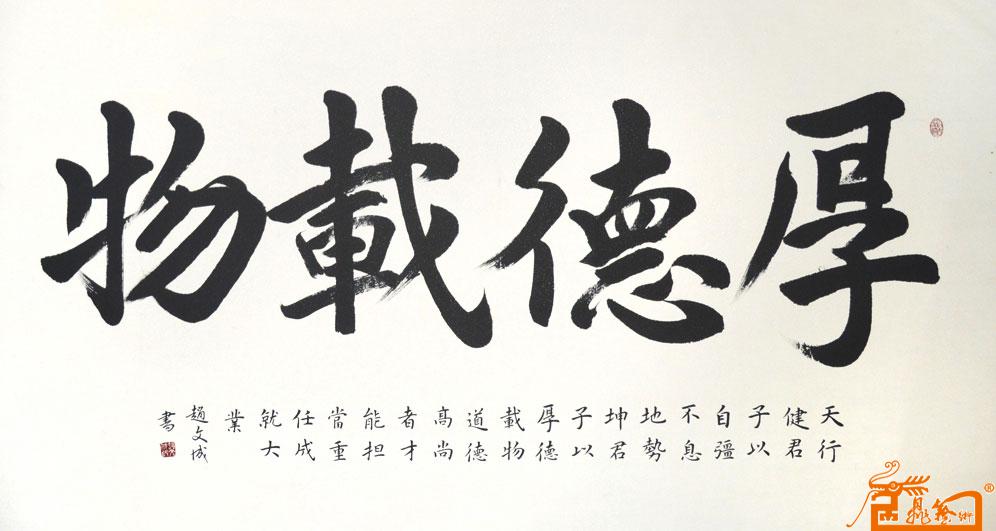 厚德載物
天行
健君
子以
自疆
不息
地勢
坤君
子以
厚德
載物
道德
高尚
者才
能担
當重
任成
就大
業
趙文成
書